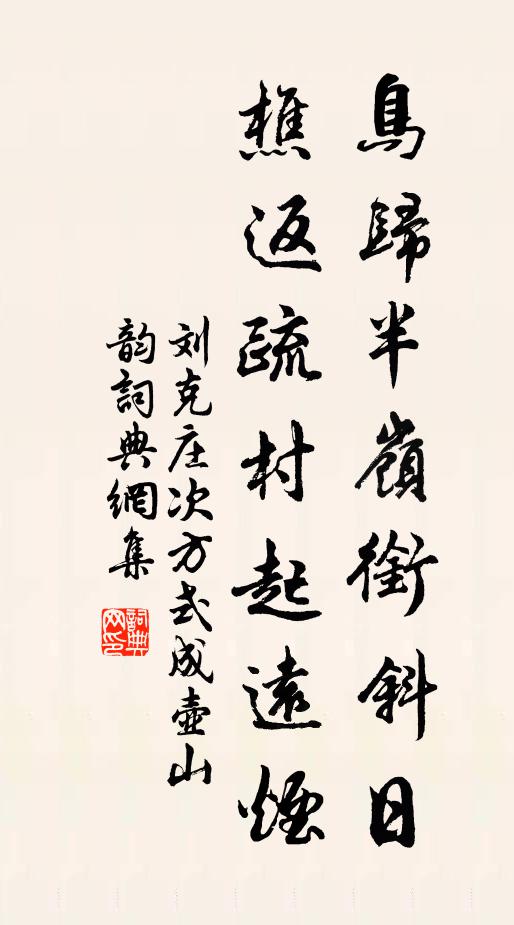 鳥歸半嶺銜斜日
樵返疏村起遠煙
刘克庄次方武成壺山
韵詞典網集
詞典
网印